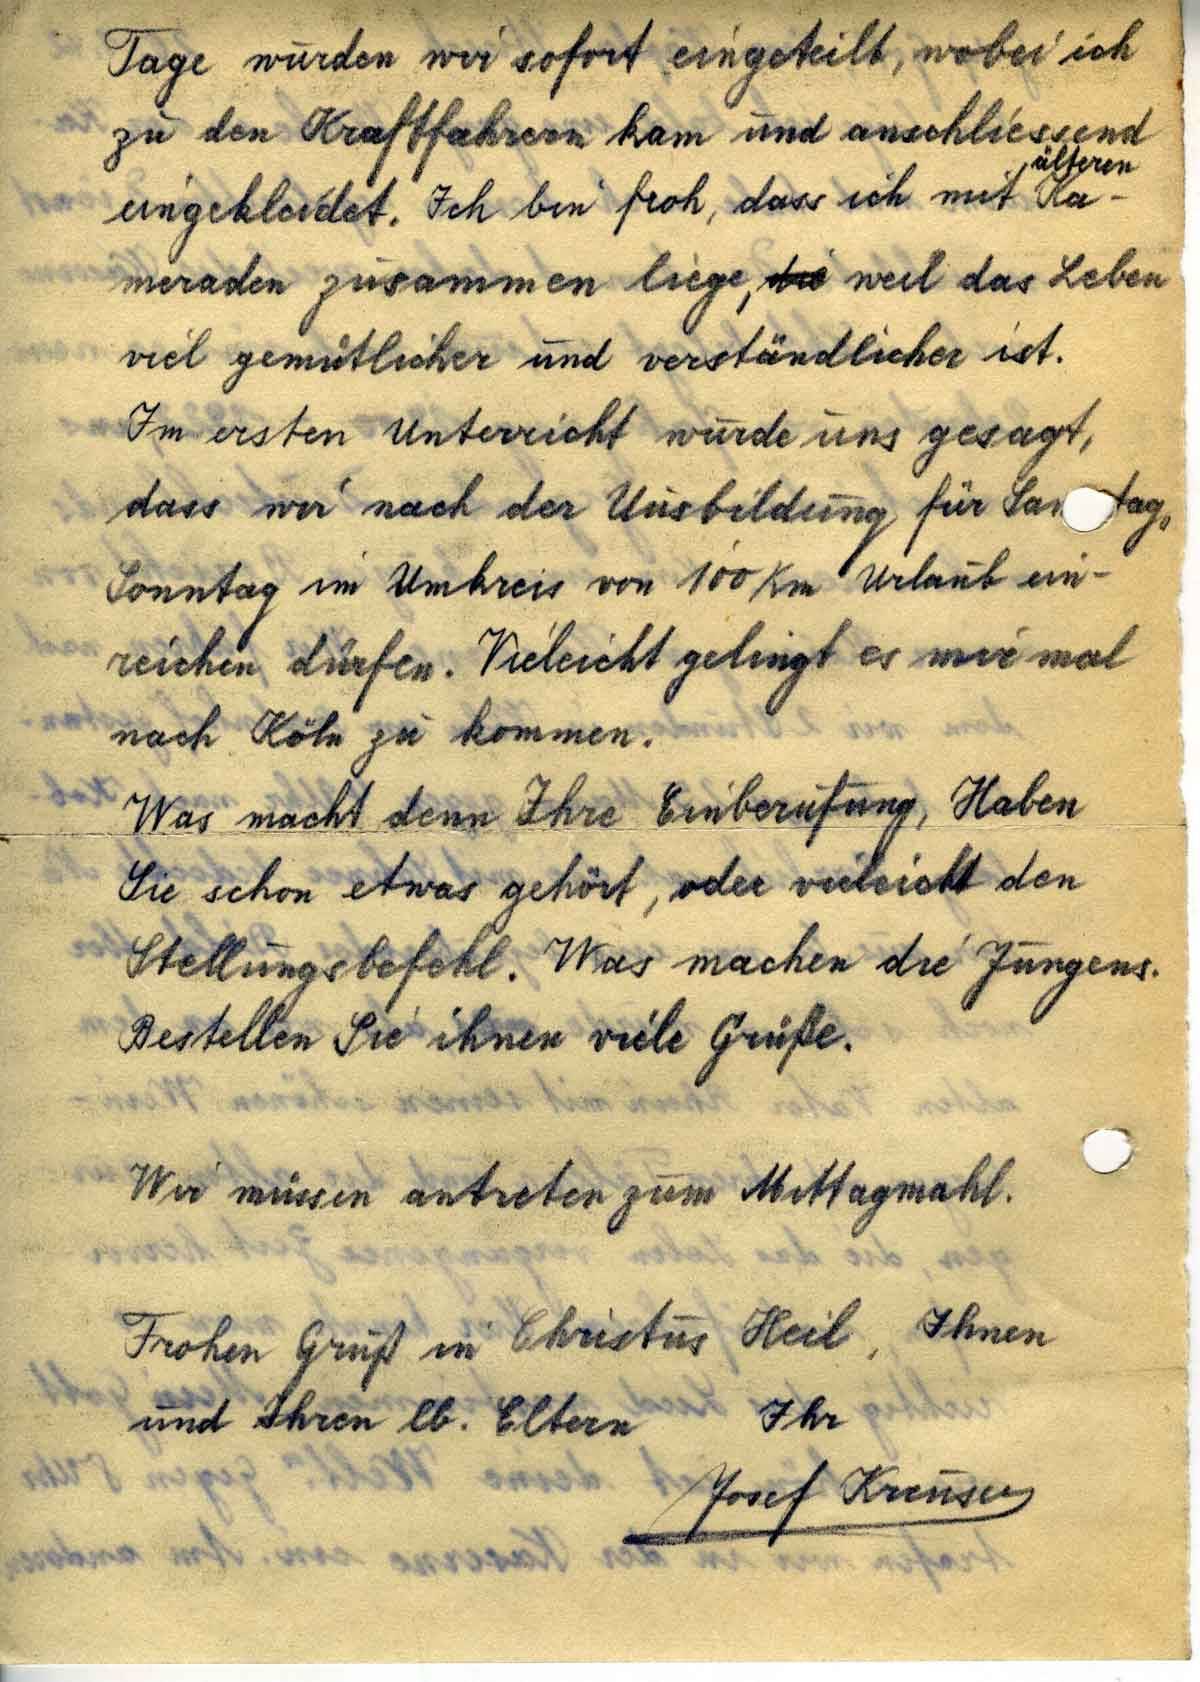 Tage wurden wir sofort eingeteilt, wobei ich
zu den Kraftfahrern kam und anschliessend
älteren
eingekleidet. Ich bin froh, dass ich mit Ka-
meraden zusammen liege, die weil das Leben
viel gemütlicher und verständlicher ist.
Im ersten Unterricht wurde uns gesagt,
dass wir nach der Ausbildung für Sam tag,
Sonntag im Umkreis von 100 Km Urlaub ein-
reichen dürfen. Vieleicht gelingt es mir mal
nach Köln zu kommen.
Was macht denn Ihre Einberufung, Haben
Sie schon etwas gehört, oder vieleicht den
Stellungsbefehl. Was machen die Jungens.
Bestellen Sie ihnen viele Grüße.
Wir müssen antreten zum Mittagmahl.
Frohen Gruß in Christus Heil, Ihnen
und Ihren lb. Eltern Ihr
Josef Kreuser